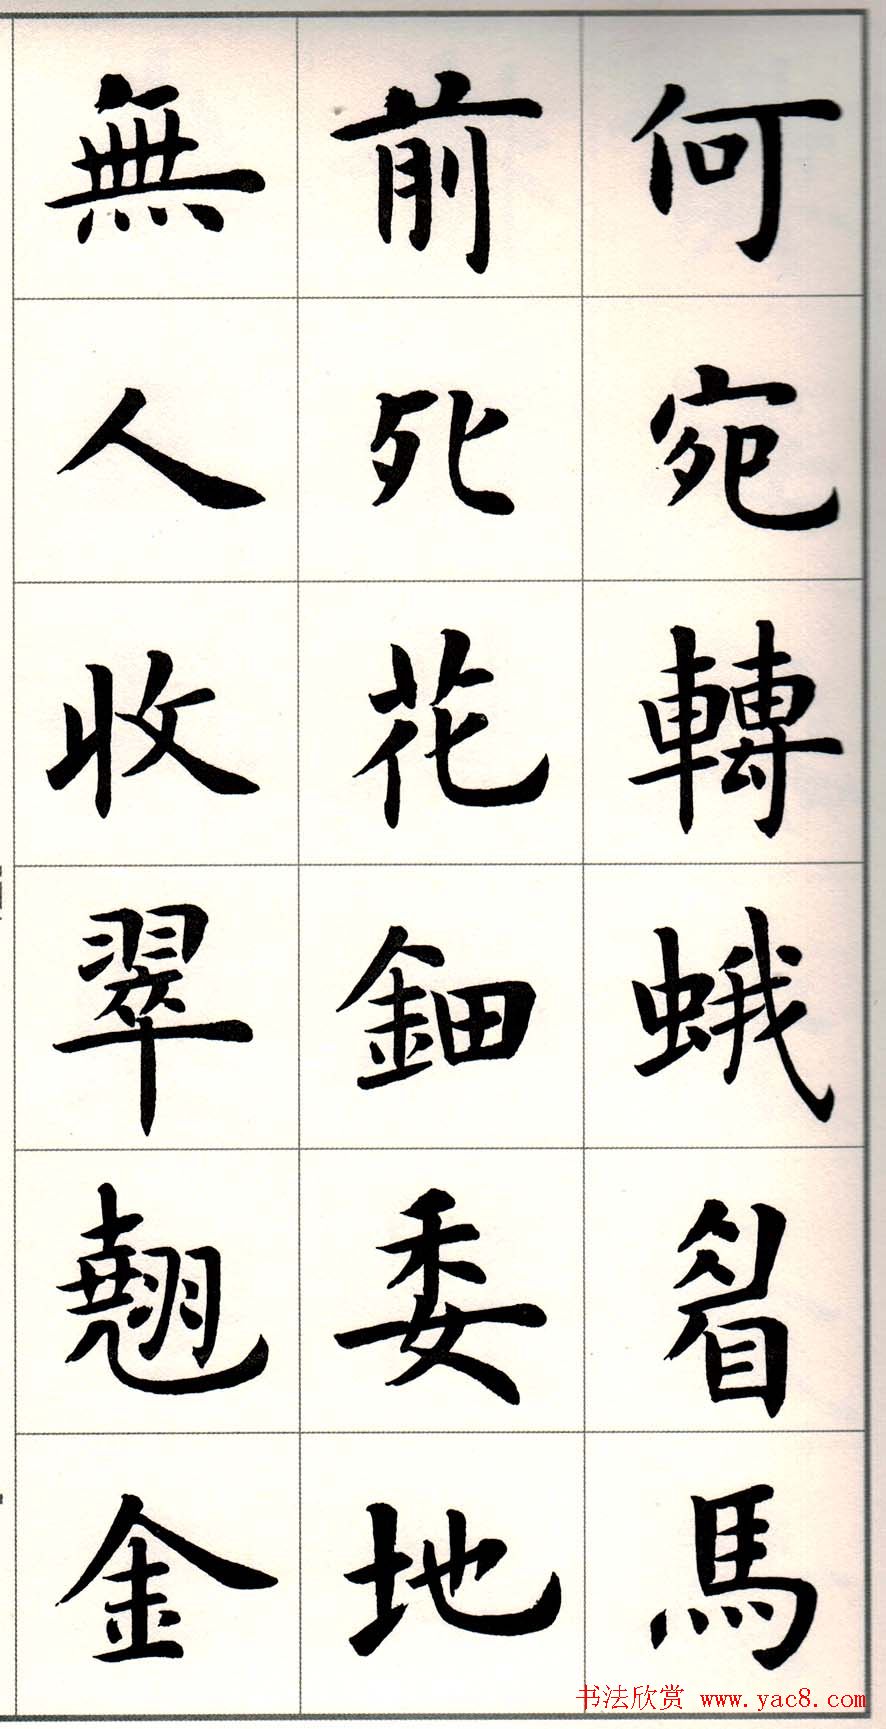 何宛轉蛾眉馬
前死花鈿委地
無人收翠翹金
书法欣赏 www.yac8.com